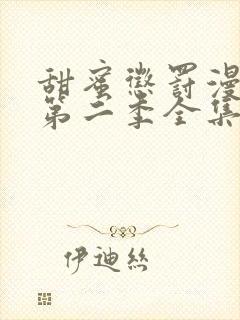 甜蜜懲罰漫
第二季全集
伊迪絲